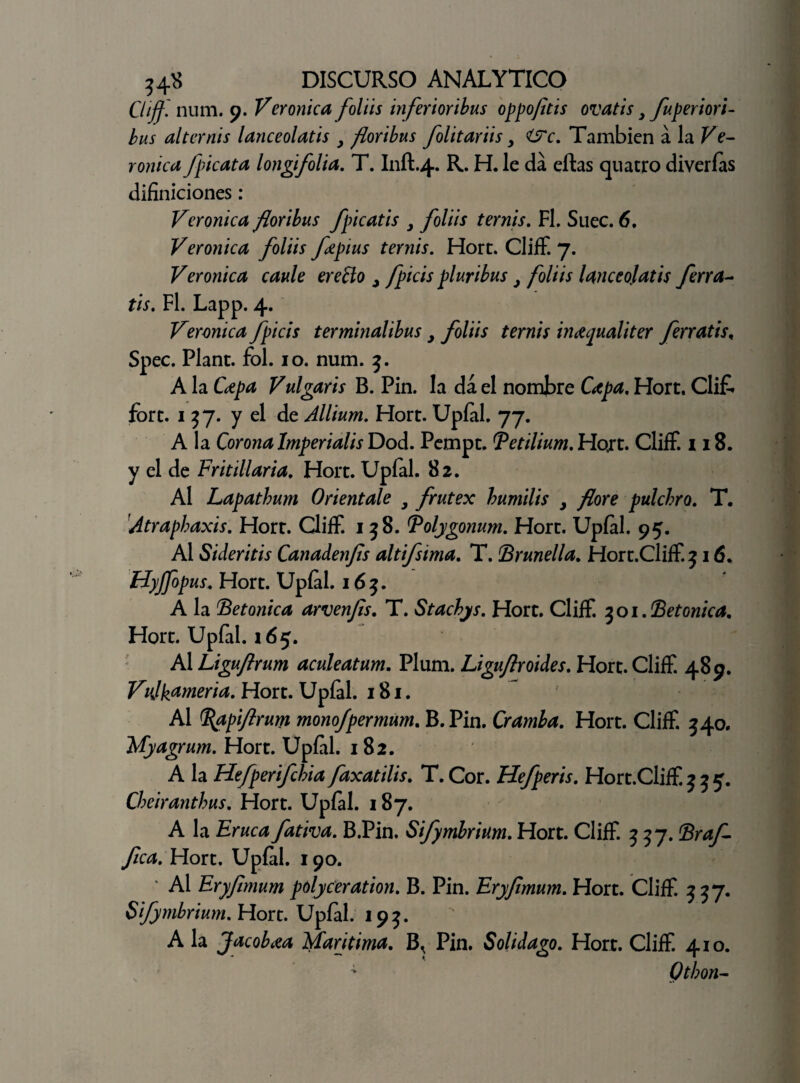 348 DISCURSO ANALYTICO
Cliff. num. 9. Veronica foliis inferioribus oppoſitis ovatis, ſuperiori-
bus alternis lanceolatis, floribus ſolitariis, &c. Tambien à la Ve-
ronica ſpicata longifolia. T. Inſt.4. R. H. le dà eſtas quatro diverſas
difiniciones:
Veronica floribus ſpicatis, foliis ternis. Fl. Suec. 6.
Veronica foliis ſæpius ternis. Hort. Cliff. 7.
Veronica caule erecto, ſpicis pluribus, foliis lanceolatis ſerra-
tis. Fl. Lapp. 4.
Veronica ſpicis terminalibus, foliis ternis inæqualiter ſerratis.
Spec. Plant. fol. 10. num. 3.
A la Cæpa Vulgaris B. Pin. la dá el nombre Cæpa. Hort. Clif-
fort. 137. y el de Allium. Hort. Upſal. 77.
A la Corona Imperialis Dod. Pempt. Petilium. Hort. Cliff. 118.
y el de Fritillaria. Hort. Upſal. 82.
Al Lapathum Orientale, frutex humilis, flore pulchro. T.
Atraphaxis. Hort. Cliff. 138. Polygonum. Hort. Upſal. 95.
Al Sideritis Canadenſis altiſsima. T. Brunella. Hort.Cliff.316.
Hyſſopus. Hort. Upſal. 163.
A la Betonica arvenſis. T. Stachys. Hort. Cliff. 301. Betonica.
Hort. Upſal. 165.
Al Liguſtrum aculeatum. Plum. Liguſtroides. Hort. Cliff. 489.
Vulkameria. Hort. Upſal. 181.
Al Rapiſtrum monoſpermum. B. Pin. Cramba. Hort. Cliff. 340.
Myagrum. Hort. Upſal. 182.
A la Heſperiſchia ſaxatilis. T. Cor. Heſperis. Hort.Cliff.335.
Cheiranthus. Hort. Upſal. 187.
A la Eruca ſativa. B.Pin. Siſymbrium. Hort. Cliff. 337. Braſ-
ſica. Hort. Upſal. 190.
Al Eryſimum polyceration. B. Pin. Eryſimum. Hort. Cliff. 337.
Siſymbrium. Hort. Upſal. 193.
A la Jacobæa Maritima. B. Pin. Solidago. Hort. Cliff. 410.
Othon-